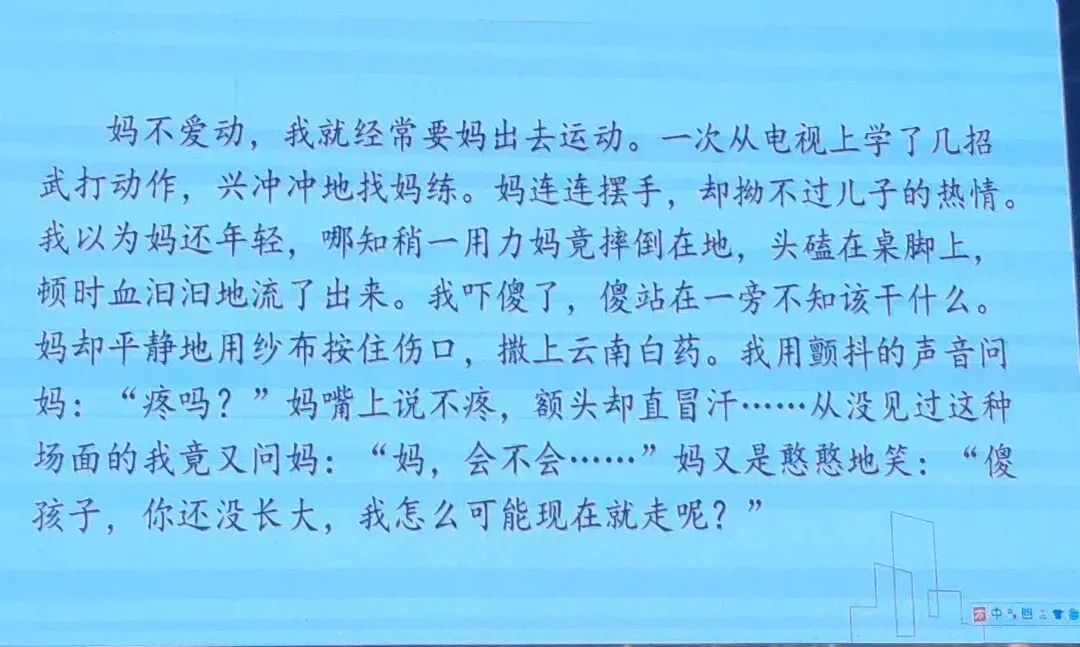 妈不爱动，我就经常要妈出去运动。一次从电视上学了几招
武打动作，兴冲冲地找妈练。妈连连摆手，却拗不过儿子的热情。
我以为妈还年轻，哪知稍一用力妈竟摔倒在地，头磕在桌脚上，
顿时血汩汩地流了出来。我吓傻了，傻站在一旁不知该干什么。
妈却平静地用纱布按住伤口，撒上云南白药。我用颤抖的声音问
妈：“疼吗？”妈嘴上说不疼，额头却直冒汗……从没见过这种
场面的我竟又问妈：“妈，会不会……”妈又是憨憨地笑：“傻
孩子，你还没长大，我怎么可能现在就走呢？”
中